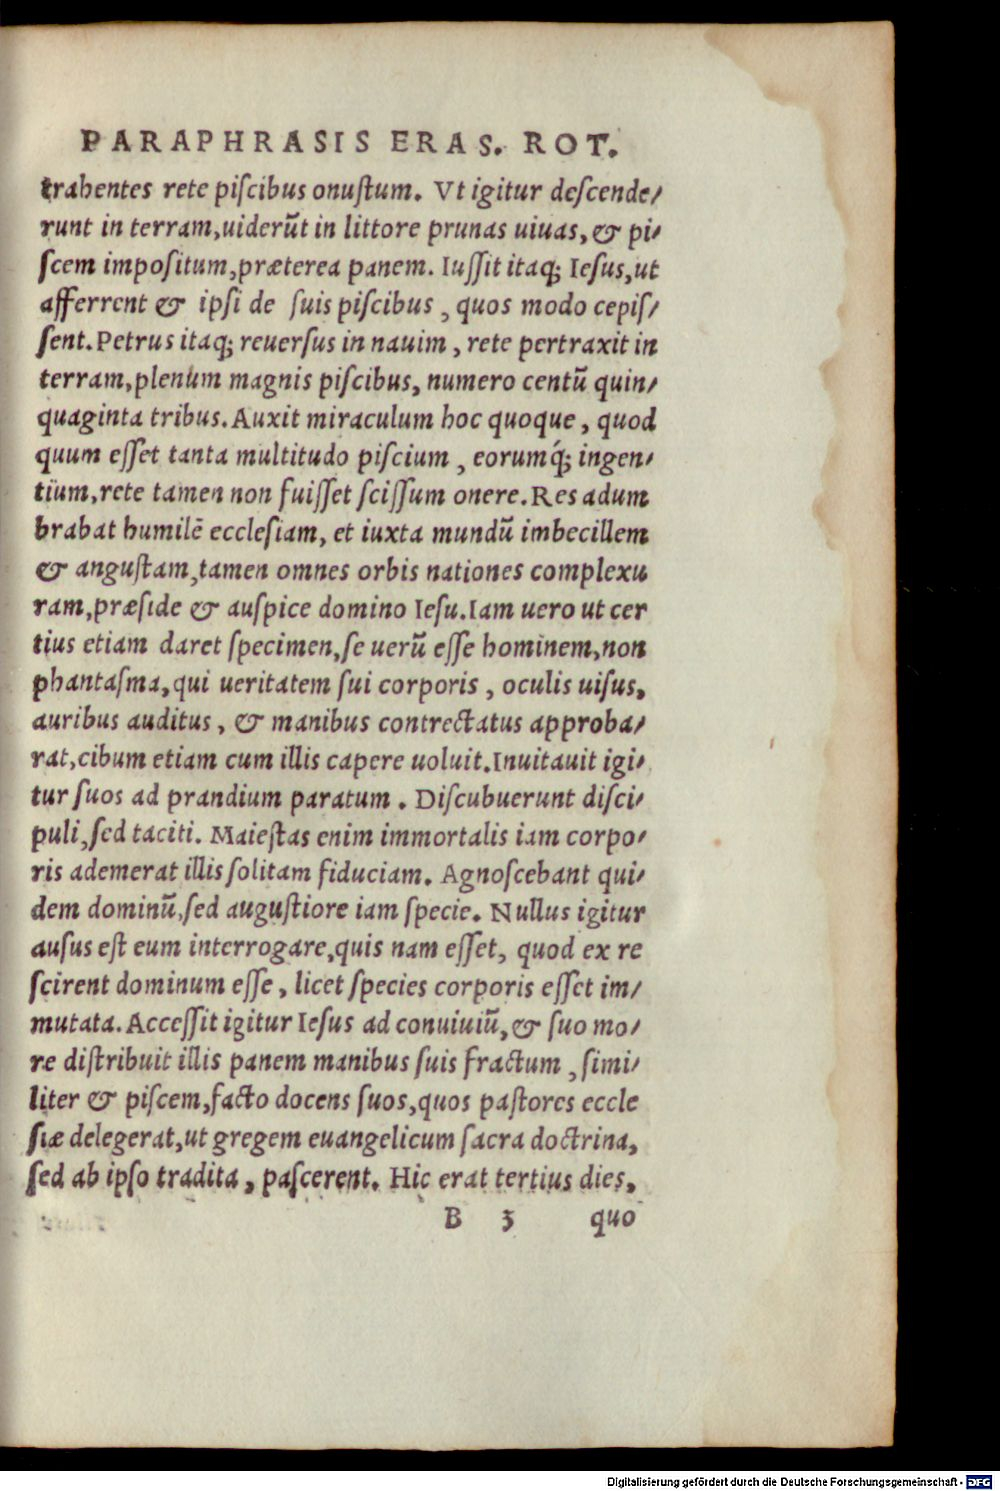 PARAPHRASIS ERAS. ROT.
trahentes rete piſcibus onuſtum. Vt igitur deſcende⸗
runt in terram,uiderūt in littore prunas uiuas,& pi⸗
ſcem impoſitum,præterea panem. Iuſſit itaq; Ieſus,ut
afferrent & ipſi de ſuis piſcibus , quos modo cepiſ⸗
ſent.Petrus itaq; reuerſus in nauim , rete pertraxit in
terram,plenum magnis piſcibus, numero centū quin⸗
quaginta tribus.Auxit miraculum hoc quoque , quod
quum eſſet tanta multitudo piſcium , eorumq́; ingen⸗
tium,rete tamen non fuiſſet ſciſſum onere.Res adum
brabat humilē eccleſiam, et iuxta mundū imbecillem
& anguſtam,tamen omnes orbis nationes complexu
ram,præſide & auſpice domino Ieſu.Iam uero ut cer
tius etiam daret ſpecimen,ſe uerū eſſe hominem,non
phantaſma,qui ueritatem ſui corporis , oculis uiſus,
auribus auditus , & manibus contrectatus approba⸗
rat,cibum etiam cum illis capere uoluit.Inuitauit igi⸗
tur ſuos ad prandium paratum . Diſcubuerunt diſci⸗
puli,ſed taciti. Maieſtas enim immortalis iam corpo⸗
ris ademerat illis ſolitam fiduciam. Agnoſcebant qui⸗
dem dominū,ſed auguſtiore iam ſpecie. Nullus igitur
auſus eſt eum interrogare,quis nam eſſet, quod ex re
ſcirent dominum eſſe , licet ſpecies corporis eſſet im⸗
mutata.Acceſſit igitur Ieſus ad conuiuiū,& ſuo mo⸗
re diſtribuit illis panem manibus ſuis fractum , ſimi⸗
liter & piſcem,facto docens ſuos,quos paſtores eccle
ſiæ delegerat,ut gregem euangelicum ſacra doctrina,
ſed ab ipſo tradita , paſcerent. Hic erat tertius dies,
B 3 quo
Digitalisierung gefördert durch die Deutsche Forschungsgemeinschaft - DFG